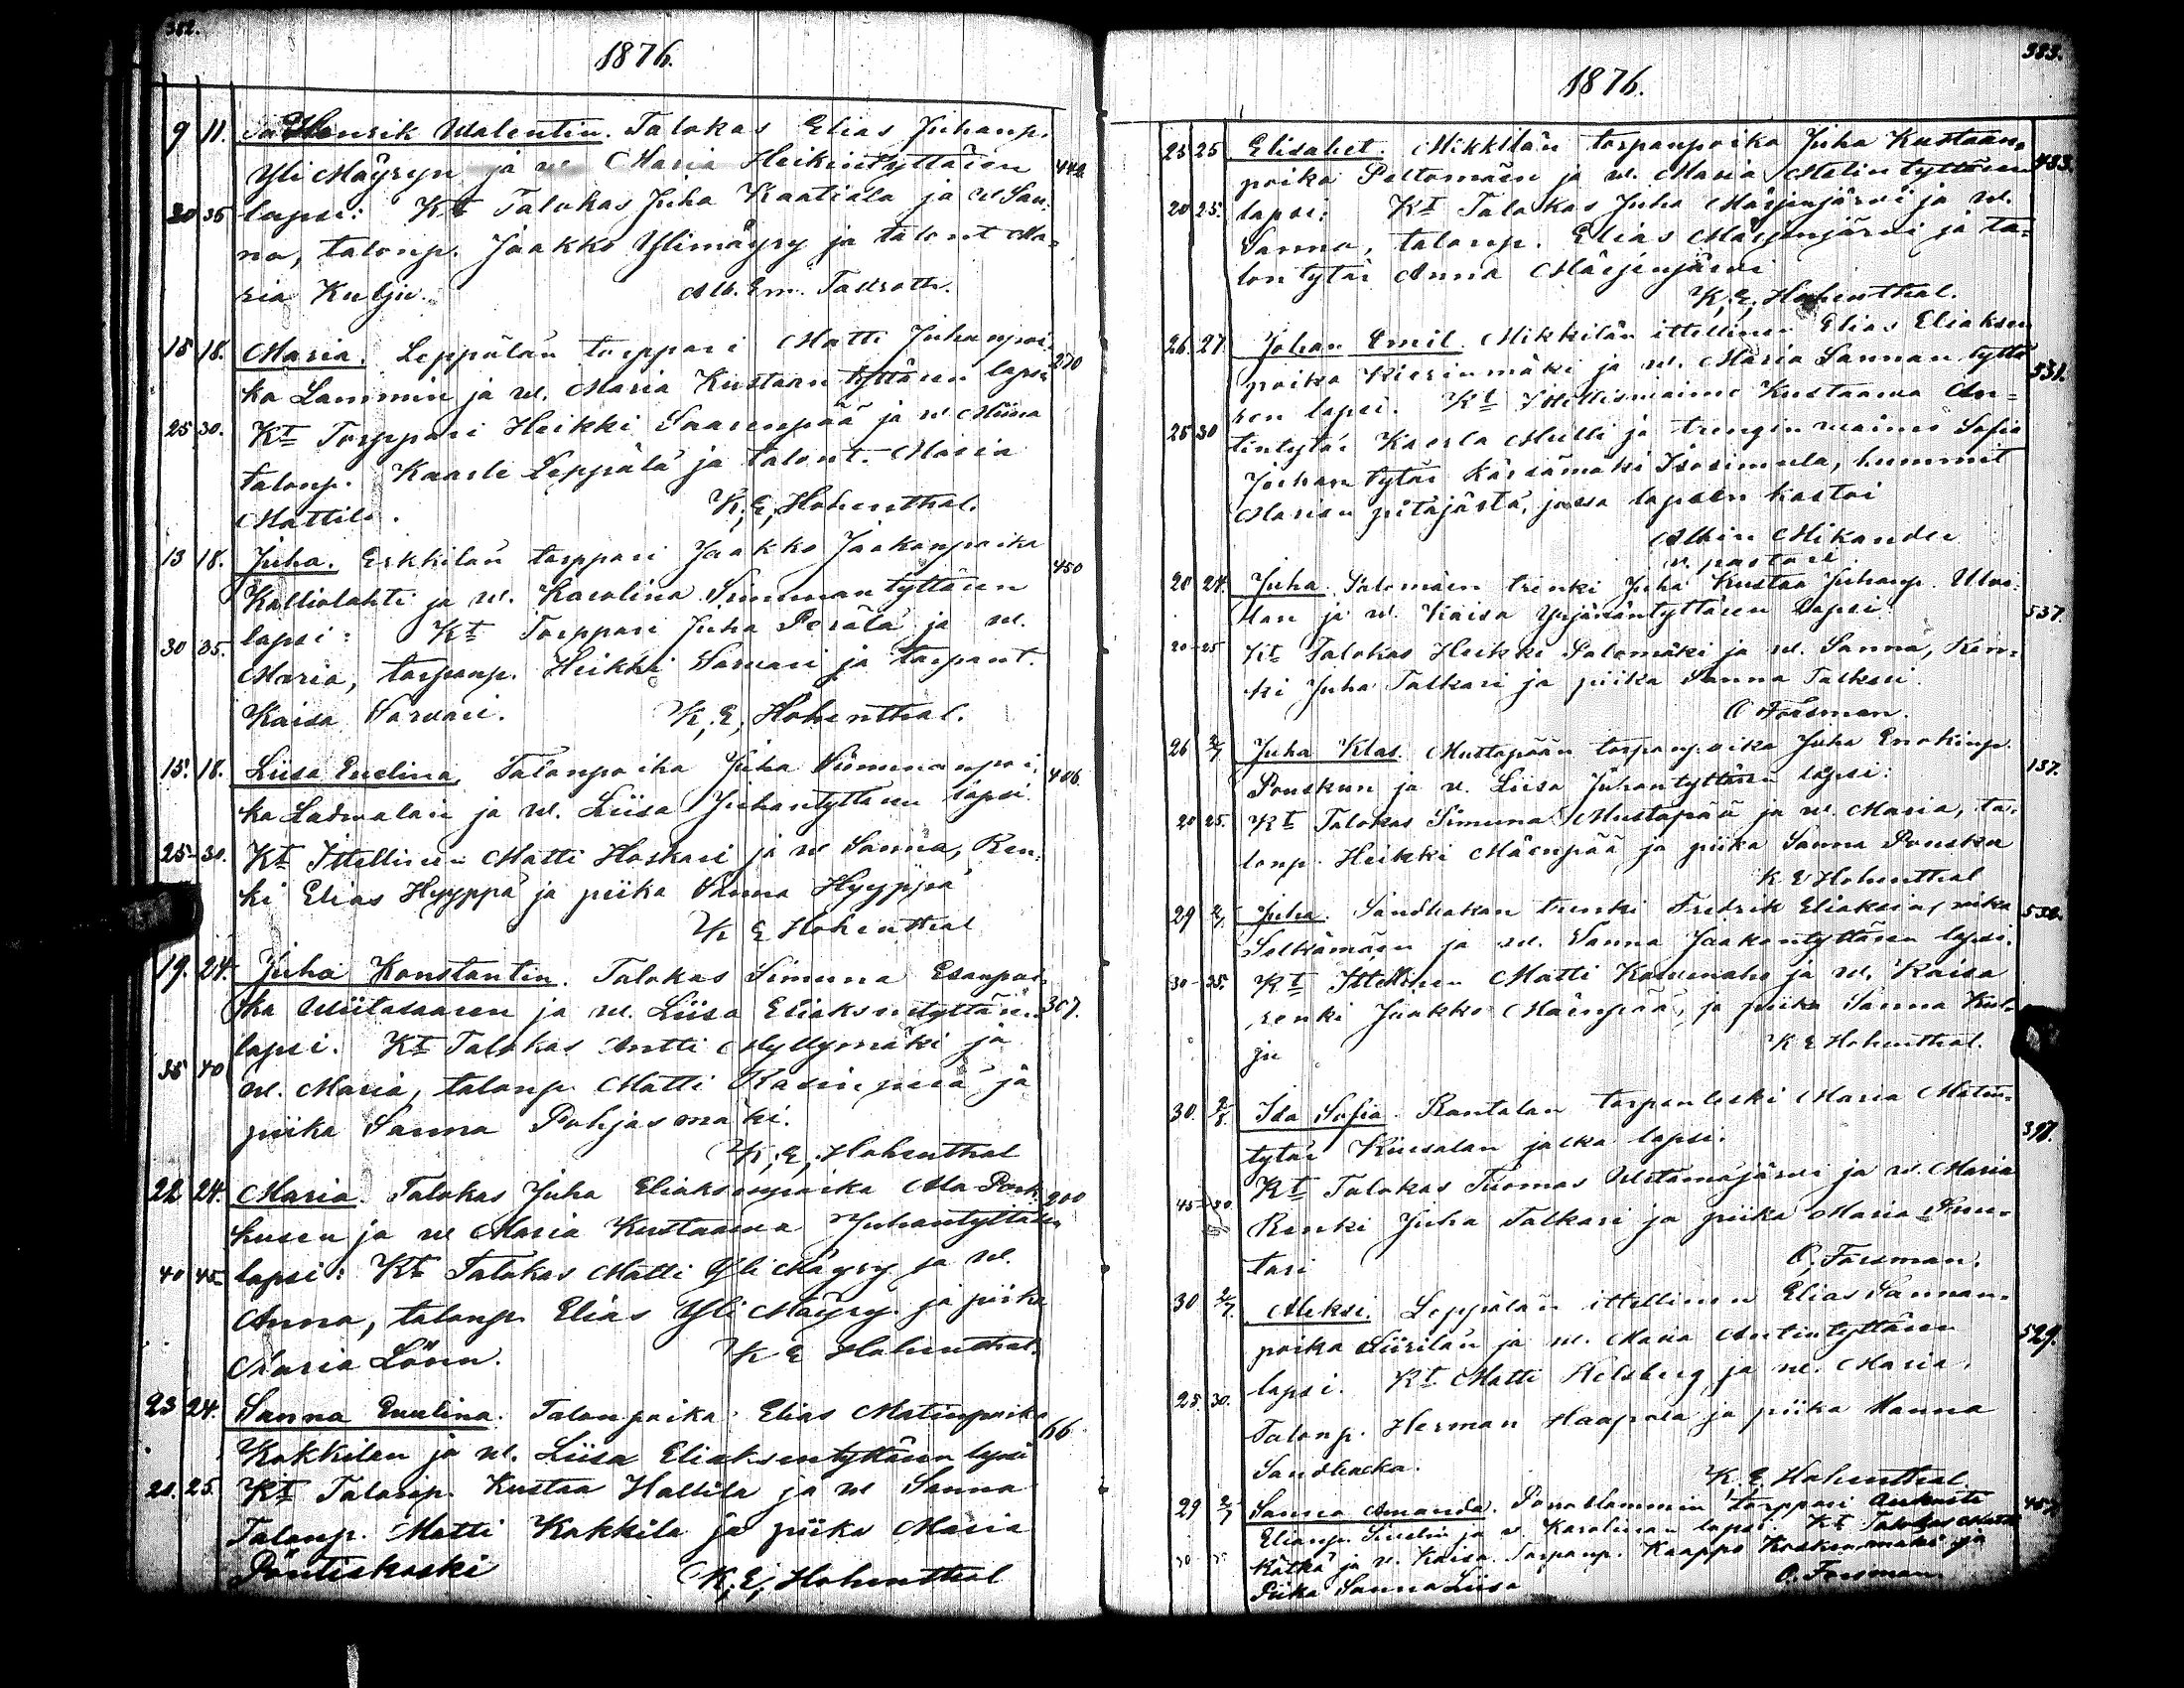 382.
1876.
9 11. Henrik Walentin. Talokas Elias Juhanp.
Yli Mäyryn ja w Maria Heikintyttären 442
30 35 lapsi: Kt Talokas Juha Kaatiala ja w San-
na, talonp. Jaakko Ylimäyry ja talont Ma-
ria Kulju. Alb. Em.
15 18. Maria. Leppälän torppari Matti Juhanpoi- 270
ka Lammin ja w. Maria Kustaan tyttären lapsi
25 30. Kt Torppari Heikki Saarenpää ja w Miina
talonp. Kaarle Leppälä ja talont. Maria
Mattila. K. E. Hohenthal.
13 18. Juha. Erkkilän torppari Jaakko Jaakonpoika 450
Kalliolahti ja w. Karolina Simuntyttären
lapsi: Kt Torppari Juha Perälä ja w.
30 35. Maria, torpanp. Heikki Sarvari ja torpant.
Kaisa Sarvari. K. E. Hohenthal.
15. 18. Liisa Evelina, Talonpoika Juha Simunanpoi- 406.
ka Ladvalan ja w. Liisa Juhantyttären lapsi.
25-30. Kt Ittellinen Matti Haskari ja w Sanna, Ren-
ki Elias Hyyppä ja piika Sanna Hyyppä
K E Hohenthal
19. 24. Juha Konstantin. Talokas Simuna Esanpoi-
ka Wiitasaaren ja w. Liisa Eliaksentyttären 307.
lapsi. Kt Talokas Antti Myllymäki ja
35 40 w. Maria, talonp. Matti Rasinperä ja
piika Sanna Pohjasmäki.
K. E. Hohenthal
22 24. Maria. Talokas Juha Eliaksenpoika Ala Pork- 200
kusen ja w Maria Kustaawa Juhantyttären
40 45 lapsi: Kt Talokas Matti Yli Mäyry ja w.
Anna, talonp. Elias Yli Mäyry ja piika
Maria Lönn. K E Hohenthal.
23 24. Sanna Evelina. Talonpoika Elias Matinpoika 66
Kokkilan ja w. Liisa Eliaksentyttären lapsi
20. 25. Kt Talonp. Kustaa Hallila ja w Sanna
Talonp. Matti Kokkila ja piika Maria
Pöntiskoski K. E. Hohenthal
383.
1876.
23 25 Elisabet. Mikkilän torpanpoika Juha Kustaan- 483.
poika Peltomäen ja w. Maria Matintyttären
20 25. lapsi: Kt Talokas Juha Märjenjärvi ja w.
Sanna, talonp. Elias Märjenjärvi ja ta-
lontytär Anna Märjenjärvi
K. E. Hohenthal.
26. 27. Johan Emil. Mikkilän ittellinen Elias Eliaksen
poika Kierinmäki ja w. Maria Sannan tyttä 531.
ren lapsi. Kt Ittellismaimo Kustaawa An-
25 30 tintytär Kaerla Mulli ja trengin waimo Sofia
Juhan tytär Kärsämäki Isosimula, kummit
Marian pitäjästä, jossa lapsen kastoi
Albin Mikander
v. pastori
20 24. Juha. Salomäen trenki Juha Kustaa Juhanp.
ja w. Kaisa Yrjänäntyttären lapsi 537.
20-25 Kt Talokas Heikki Salomäki ja w. Sanna, Ren-
ki Juha Talkari ja piika Sanna Talkari.
O Forsman.
26 2/7 Juha Klas. Mustapään torpanpoika Juha Enokinp.
Pouskun ja w. Liisa Juhantyttären lapsi: 137.
20 25. Kt Talokas Simuna Mustapää ja w. Maria, ta-
lonp. Heikki Mäenpää ja piika Sanna Pousku
K E Hohenthal
29 2/7 Juha. Sandhakan trenki Fredrik Eliaksenpoika
ja w. Sanna Jaakontyttären lapsi.
30-35. Kt Ittellinen Matti ja w. Kaisa
renki Jaakko Mäenpää, ja piika Sanna Kul-
ju K E Hohenthal.
30. Ida Sofia. Rantalan torpanleski Maria Matin-
tytär Kuusalan jalka lapsi. 397.
45-50. Kt Talokas Tuomas Wetämäjärvi ja w. Maria
Renki Juha Talkari ja piika Maria Suu-
tari O. Forsman.
30 2/7. Aleksi. Leppälän ittellinen Elias Sannan-
poika Liirilän ja w. Maria Antintyttären 529.
25. 30. lapsi. Kt Matti Helsberg ja w. Maria.
Talonp. Herman Haapala ja piika Manna
Sandhacka. K. E. Hohenthal
29 2/7 Sanna Amanda. torppari Aukusti
Elianp. ja w. Karolinan lapsi. Kt Talokas Matti
Kätkä ja w. Kaisa. Torpanp. Kaappo Koskenmäki ja
Piika Sanna Liisa O. Forsman.